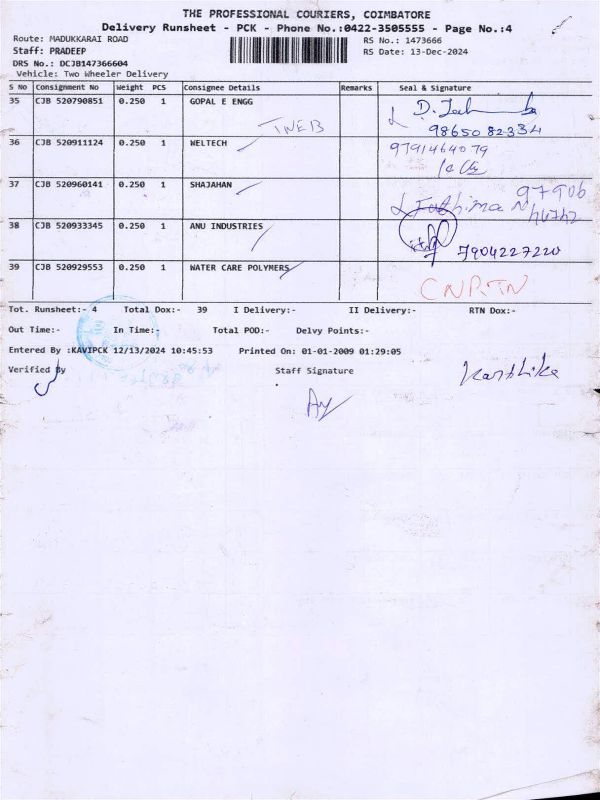 THE PROFESSIONAL COURIERS, COIMBATORE
Delivery Runsheet - PCK - Phone No.:0422-3505555 - Page No.:4
Route: MADUKKARAI ROAD
RS No.: 1473666
Staff: PRADEEP
RS Date: 13-Dec-2024
DRS No.: DCJB147366604
Vehicle: Two Wheeler Delivery
S No Consignment No Weight PCS Consignee Details Remarks Seal & Signature
35 CJB 520790851 0.250 1 GOPAL E ENGG
TNEB 98650 82334
36 CJB 520911124 0.250 1 WELTECH 9791464079
37 CJB 520960141 0.250 1 SHAJAHAN 97906
Fathima
38 CJB 520933345 0.250 1 ANU INDUSTRIES
7904227220
39 CJB 520929553 0.250 1 WATER CARE POLYMERS
CNRTN
Tot. Runsheet:- 4 Total Dox:- 39 I Delivery:- II Delivery:- RTN Dox:-
Out Time:- In Time:- Total POD:- Delvy Points:-
Entered By :KAVIPCK 12/13/2024 10:45:53 Printed On: 01-01-2009 01:29:05
Verified By Staff Signature Karthika